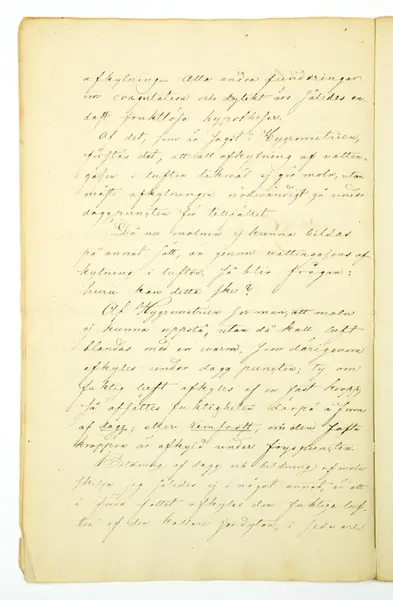 afkylning. Alla andra funderingar
om coagulation och dylikt äro således en-
dast fruktlösa hypotheser.
Af det, som är sagt i Hygrometrien,
förstås det, att all afkylning af vatten-
gasen i luften likwäl ej gör moln, utan
måste afkylningen nödwändigt gå under
daggpunkten för tillfället.
Då nu molnen ej kunna bildas
på annat sätt, än genom wattengasens af-
kylning i luften, så blir frågan:
huru kan detta ske?
Af Hygrometrien ser man, att moln
ej kunna uppstå, utan då kall luft
blandas med en warm, som därigenom
afkyles under daggpuncten; ty om
fuktig luft afkyles af en fast kropp,
så afsättes fuktigheten därpå i form
af dagg, eller rimfrost, om den fasta
kroppen är afkyld under fryspuncten.
Bildning af dagg och bildning af moln
skilja sig således ej i något annat, än att
i förra fallet afkyles den fuktiga luf-
ten af den kallare jordytan, i sednare